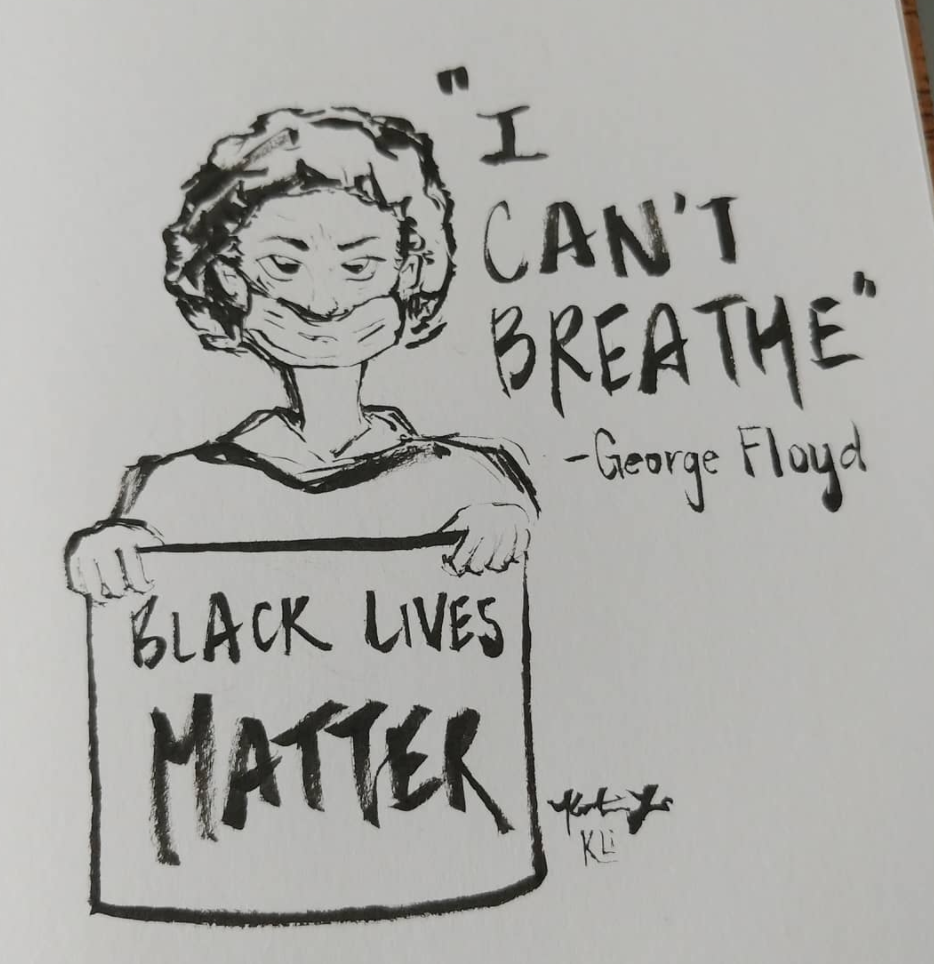 "I
CAN'T
BREATHE"
-George Floyd
BLACK LIVES
MATTER
KLi